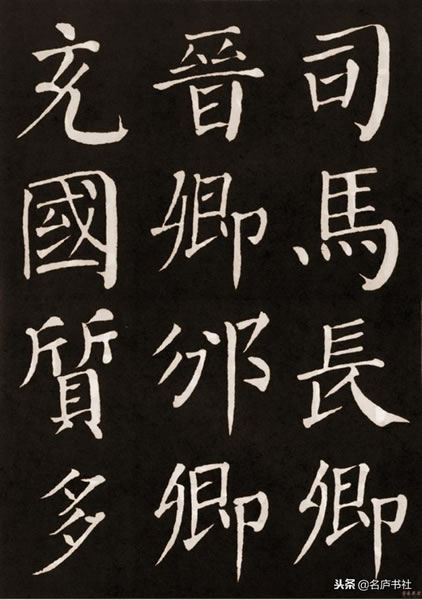 司馬長卿
晉卿邠卿
充國質多
头条 @名庐书社